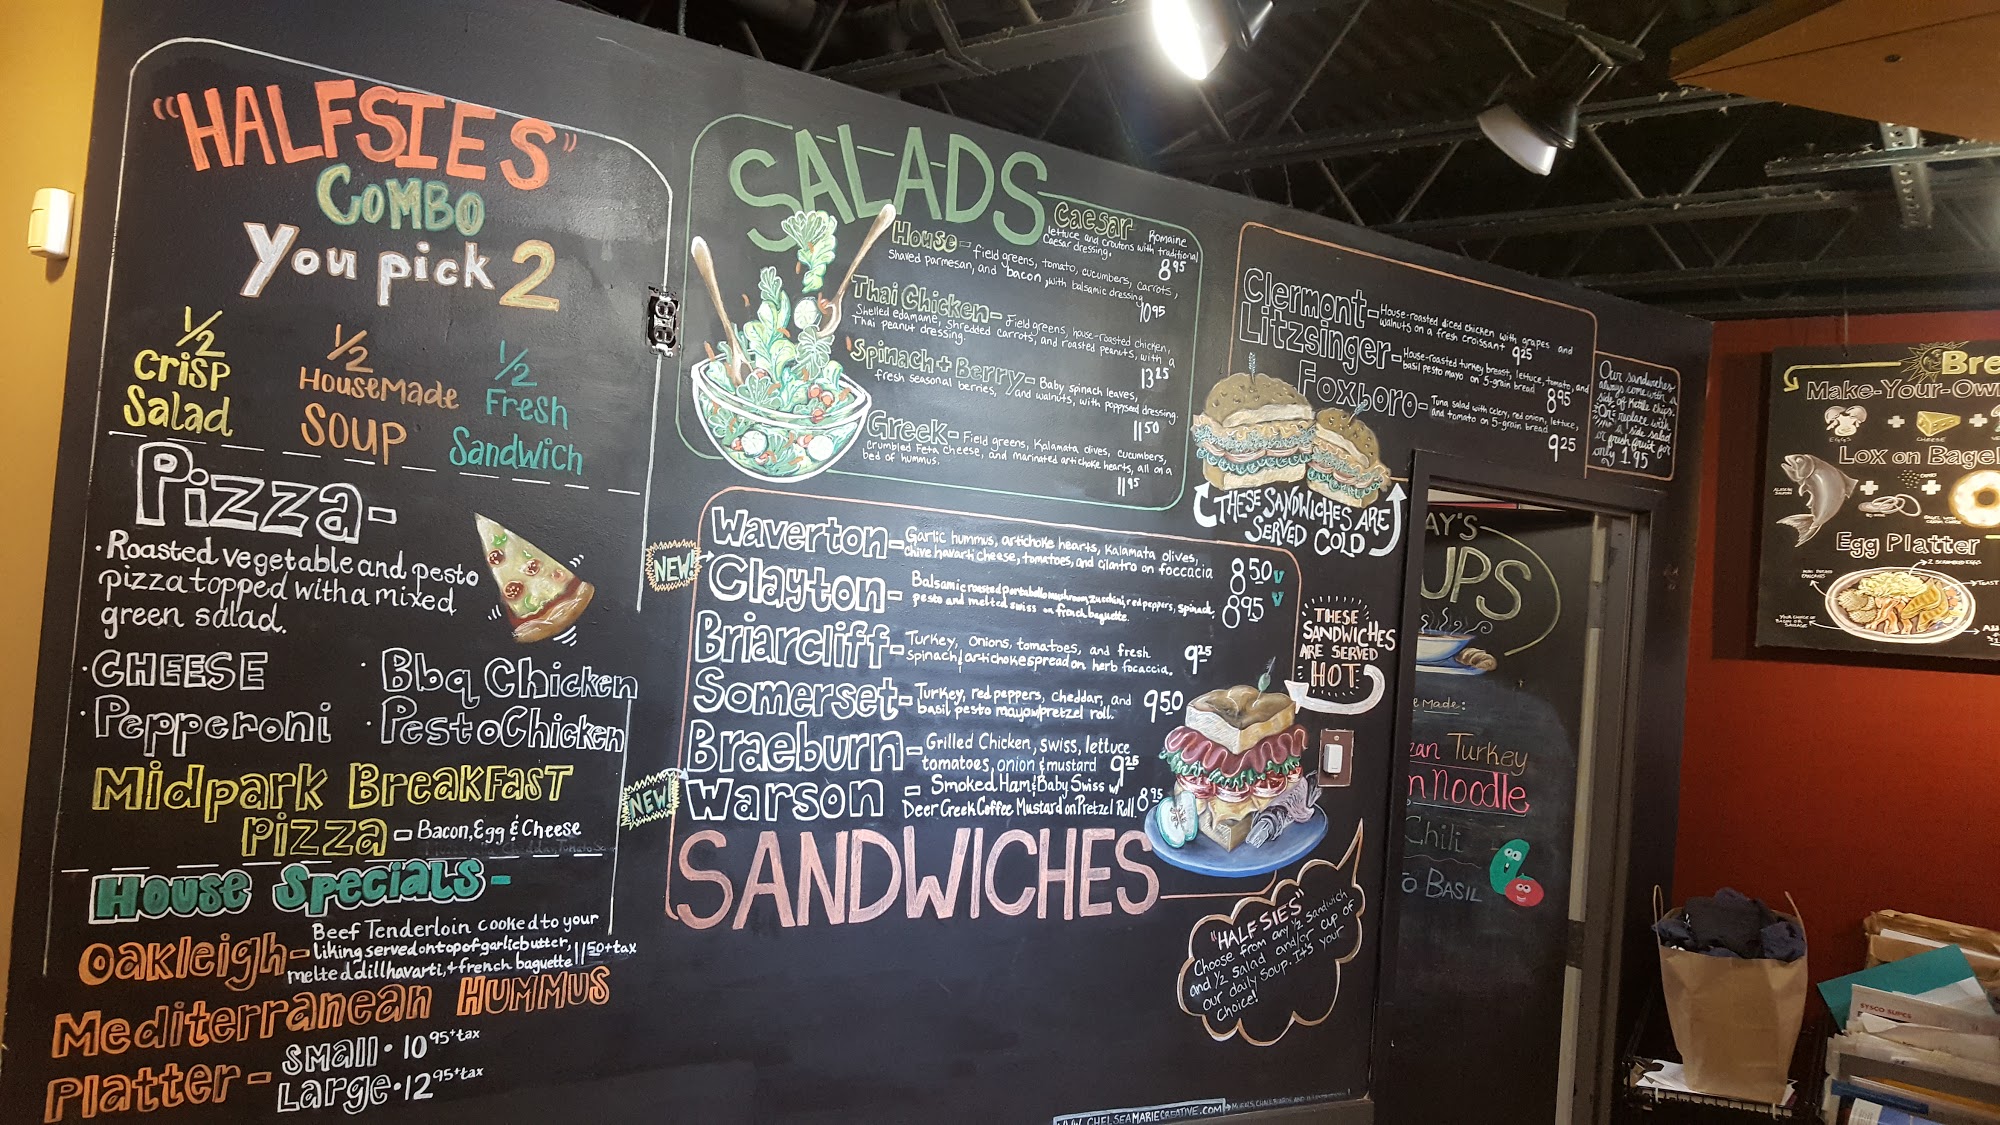 "HALFSIES"
COMBO
You pick 2
1/2 Crisp Salad
1/2 HouseMade Soup
1/2 Fresh Sandwich
Pizza-
· Roasted vegetable and pesto
pizza topped with a mixed
green salad.
· CHEESE
· Bbq Chicken
· Pepperoni
· Pesto Chicken
Midpark Breakfast
Pizza - Bacon, Egg & Cheese
House Specials -
Oakleigh - Beef Tenderloin cooked to your
liking served on top of garlic butter,
melted dill havarti, + french baguette 11.50 + tax
Mediterranean Hummus
Platter - Small · 10 95 + tax
Large · 12 95 + tax
SALADS
Caesar Romaine
lettuce and croutons with traditional
Caesar dressing. 8 95
House - field greens, tomato, cucumbers, carrots,
Shaved parmesan, and bacon, with balsamic dressing
10 95
Thai Chicken - Field greens, house-roasted chicken,
Shelled edamame, shredded carrots, and roasted peanuts, with a
Thai peanut dressing.
13 25
Spinach + Berry - Baby spinach leaves,
fresh seasonal berries, and walnuts, with poppyseed dressing.
11 50
Greek - Field greens, Kalamata olives, cucumbers,
crumbled Feta cheese, and marinated artichoke hearts, all on a
bed of hummus.
11 95
Clermont - House-roasted diced chicken with grapes and
walnuts on a fresh croissant 9 25
Litzsinger - House-roasted turkey breast, lettuce, tomato, and
basil pesto mayo on 5-grain bread 8 95
Foxboro - Tuna salad with celery, red onion, lettuce,
and tomato on 5-grain bread
9 25
Our sandwiches
always come with a
side of Kettle Chips.
Or replace with
a side salad
or fresh fruit for
only 1.95
THESE SANDWICHES ARE
SERVED COLD
NEW!
Waverton - Garlic hummus, artichoke hearts, Kalamata olives,
chive havarti cheese, tomatoes, and cilantro on foccacia 8 50 V
Clayton - Balsamic roasted portabello mushroom, zucchini, red peppers, spinach,
pesto and melted swiss on french baguette. 8 95 V
Briarcliff - Turkey, onions, tomatoes, and fresh
spinach & artichoke spread on herb focaccia. 9 25
Somerset - Turkey, red peppers, cheddar, and
basil pesto mayo w/ pretzel roll. 9 50
Braeburn - Grilled Chicken, swiss, lettuce
tomatoes, onion & mustard 9 25
NEW!
Warson - Smoked Ham & Baby Swiss w/
Deer Creek Coffee Mustard on Pretzel Roll. 8 95
SANDWICHES
THESE
SANDWICHES
ARE SERVED
HOT
"HALFSIES"
Choose from any 1/2 Sandwich
and 1/2 salad and/or cup of
our daily soup. It's your
choice!
WWW.CHELSEAMARIECREATIVE.COM
AY'S
UPS
e Made:
zan Turkey
n Noodle
Chili
o Basil
Bre
Make-Your-Own
EGGS
CHEESE
Lox on Bagel
Egg Platter
2 SCRAMBLED EGGS
TOAST
SYSCO SUPCS